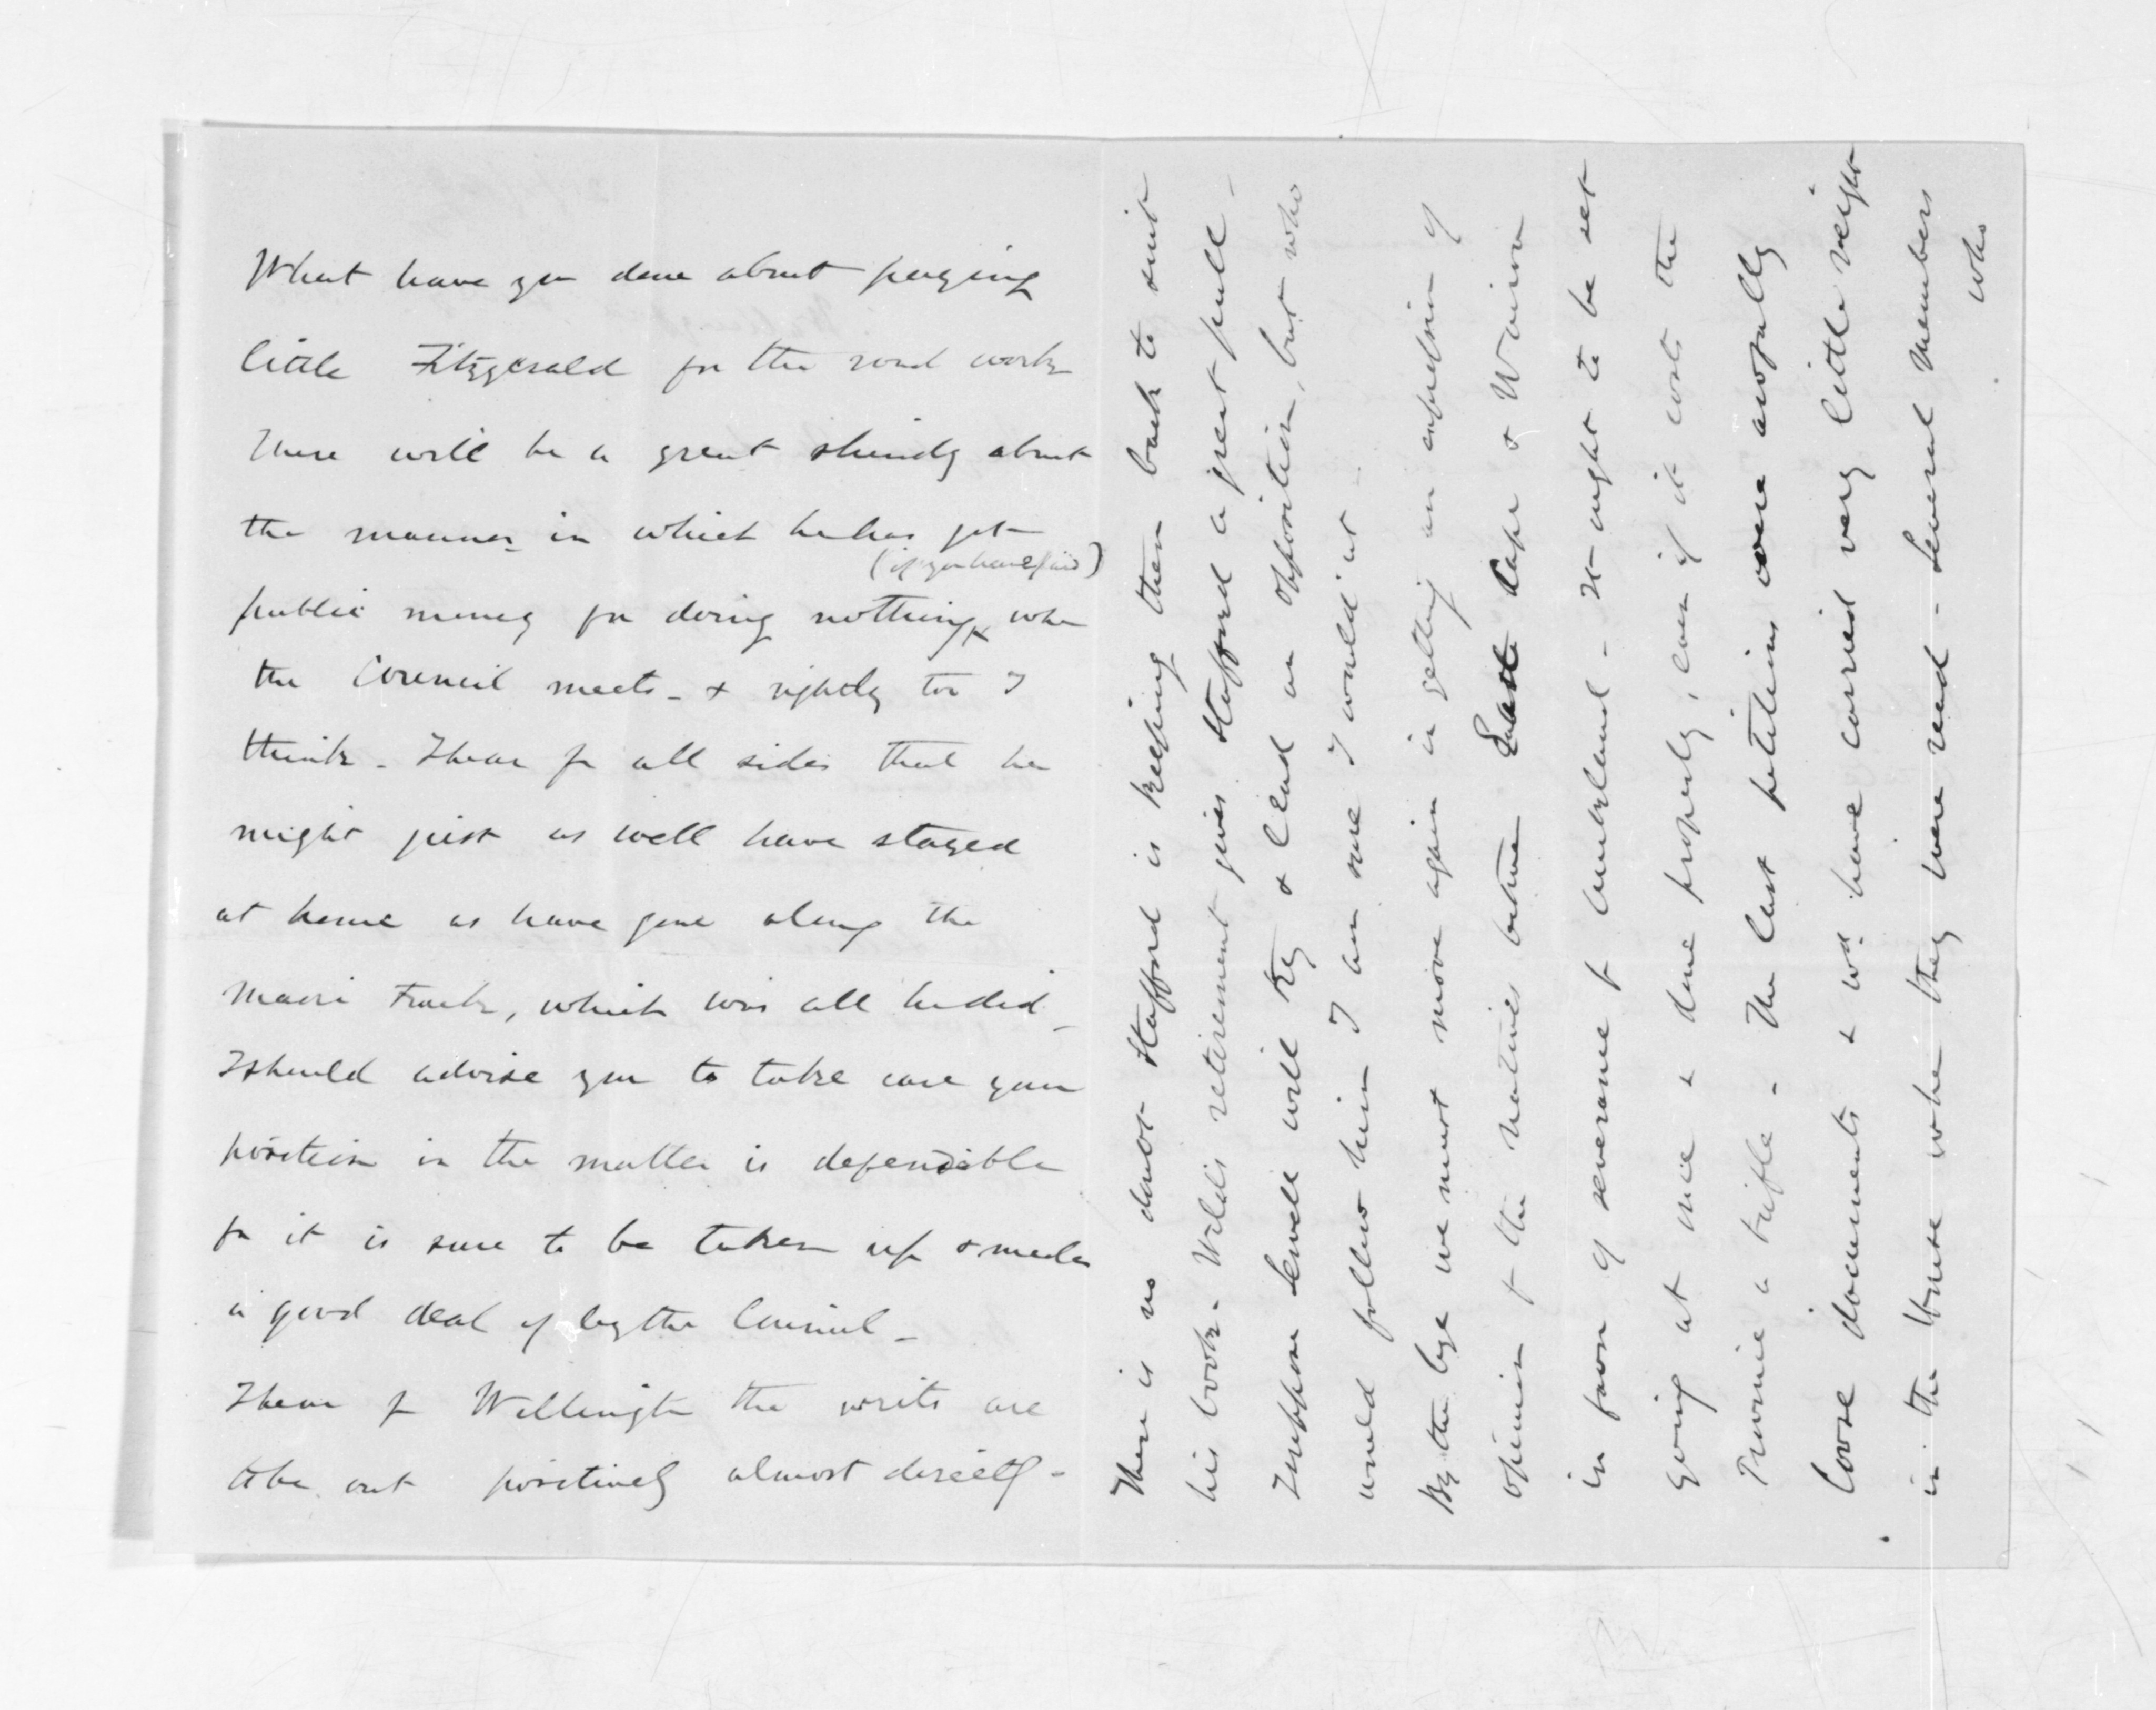 What have you done about paying
little Fitzgerald for the road work
There will be a great shindy about
the manner in which he has got
(if you have paid)
public money for doing nothing x when
the Council meets - & rightly too I
think - I hear fr all sides that he
might just as well have stayed
at home as have gone along the
Maori Track, which was all he did -
I should advise you to take care your
position in the matter is defensible
for it is sure to be taken up & made
a good deal of by the Council -
I hear fr Wellington the writs are
to be out positively almost directly -
There is no doubt Stafford is keeping them back to suit
his book - Weld's retirement gives Stafford a great pull -
I suppose Sewell will try & lead an opposition, but who
would follow him I am sure I would'nt -
By the bye we must move again in getting an expression of
opinion f the natives between East Cape & Wairoa
in favor of severance f Auckland - It ought to be set
going at once & done properly, even if it costs the
Province a trifle - The last petitions were awfully
loose documents & wd. have carried very little weight
in the House when they were read - Several Members
who